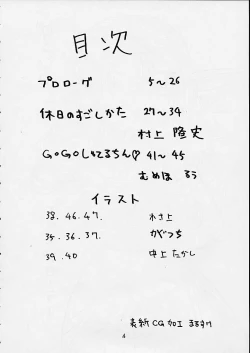 目次
プロローグ 5〜26
休日のすごしかた 27〜34
村上 隆史
GoGo!してるちん♡ 41〜45
むめほ るう
イラスト
38. 46. 47. 木さ上
35. 36. 37. がつち
39. 40 中上たかし
表紙CG加工
4